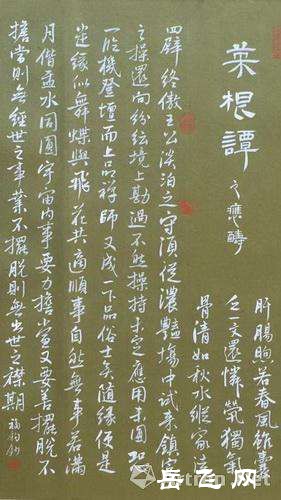 菜根譚
之應酬
肝腸煦若春風雖囊
乏一文還憐煢獨氣
骨清如秋水縱家徒
四壁終傲王公淡泊之守須從濃艷場中試來鎮定
之操還向紛紜境上勘過不然操持未定應用未圓恐
一臨機登壇而上品禪師又成一下品俗士矣隨緣便是
遣緣似舞蝶與飛花共適順事自然無事若滿
月偕盂水同圓宇宙內事要力擔當又要善擺脫不
擔當則無經世之事業不擺脫則無出世之襟期
岳飞网